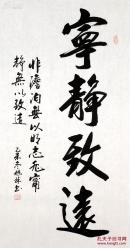 寧静致遠
非澹泊無以明志非寧
靜無以致遠